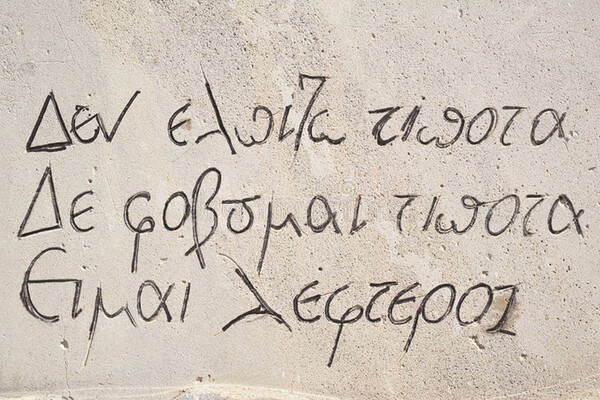 Δεν ελπιζω τιποτα
Δε φοβσμαι τιποτα
Ειμαι λεφτεροσ